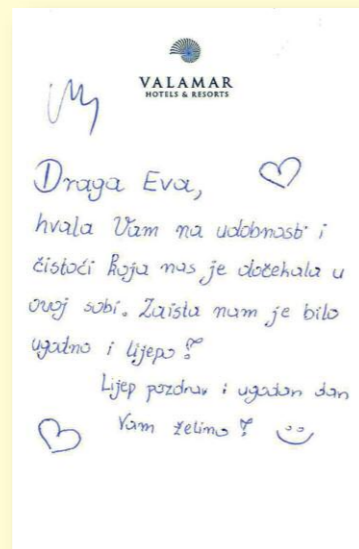 VALAMAR
HOTELS & RESORTS
Draga Eva,
hvala Vam na udobnosti i
čistoći koja nas je dočekala u
ovoj sobi. Zaista nam je bilo
ugodno i lijepo!
Lijep pozdrav i ugodan dan
Vam želimo!